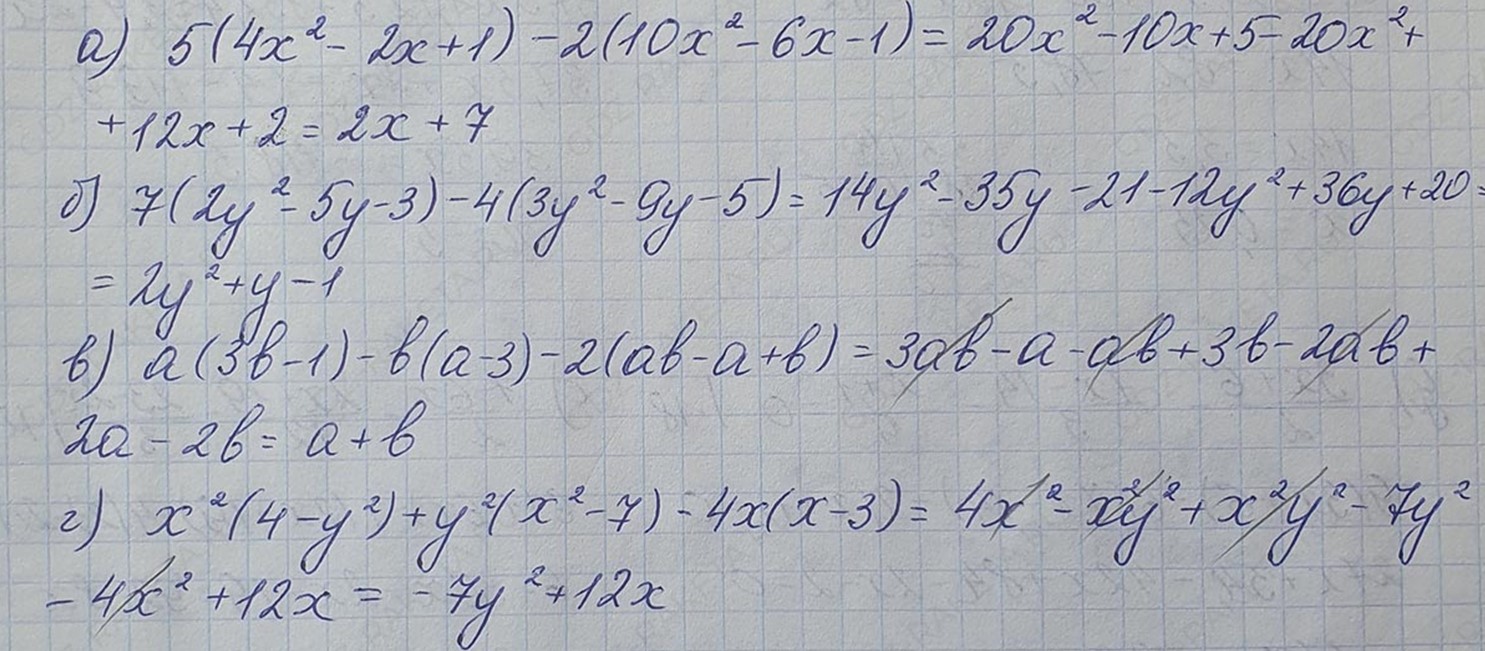 а) 5(4x² - 2x + 1) - 2(10x² - 6x - 1) = 20x² - 10x + 5 - 20x² +
+ 12x + 2 = 2x + 7
б) 7(2y² - 5y - 3) - 4(3y² - 9y - 5) = 14y² - 35y - 21 - 12y² + 36y + 20 =
= 2y² + y - 1
в) a(3b - 1) - b(a - 3) - 2(ab - a + b) = 3ab - a - ab + 3b - 2ab +
2a - 2b = a + b
г) x²(4 - y²) + y²(x² - 7) - 4x(x - 3) = 4x² - x²y² + x²y² - 7y²
- 4x² + 12x = -7y² + 12x